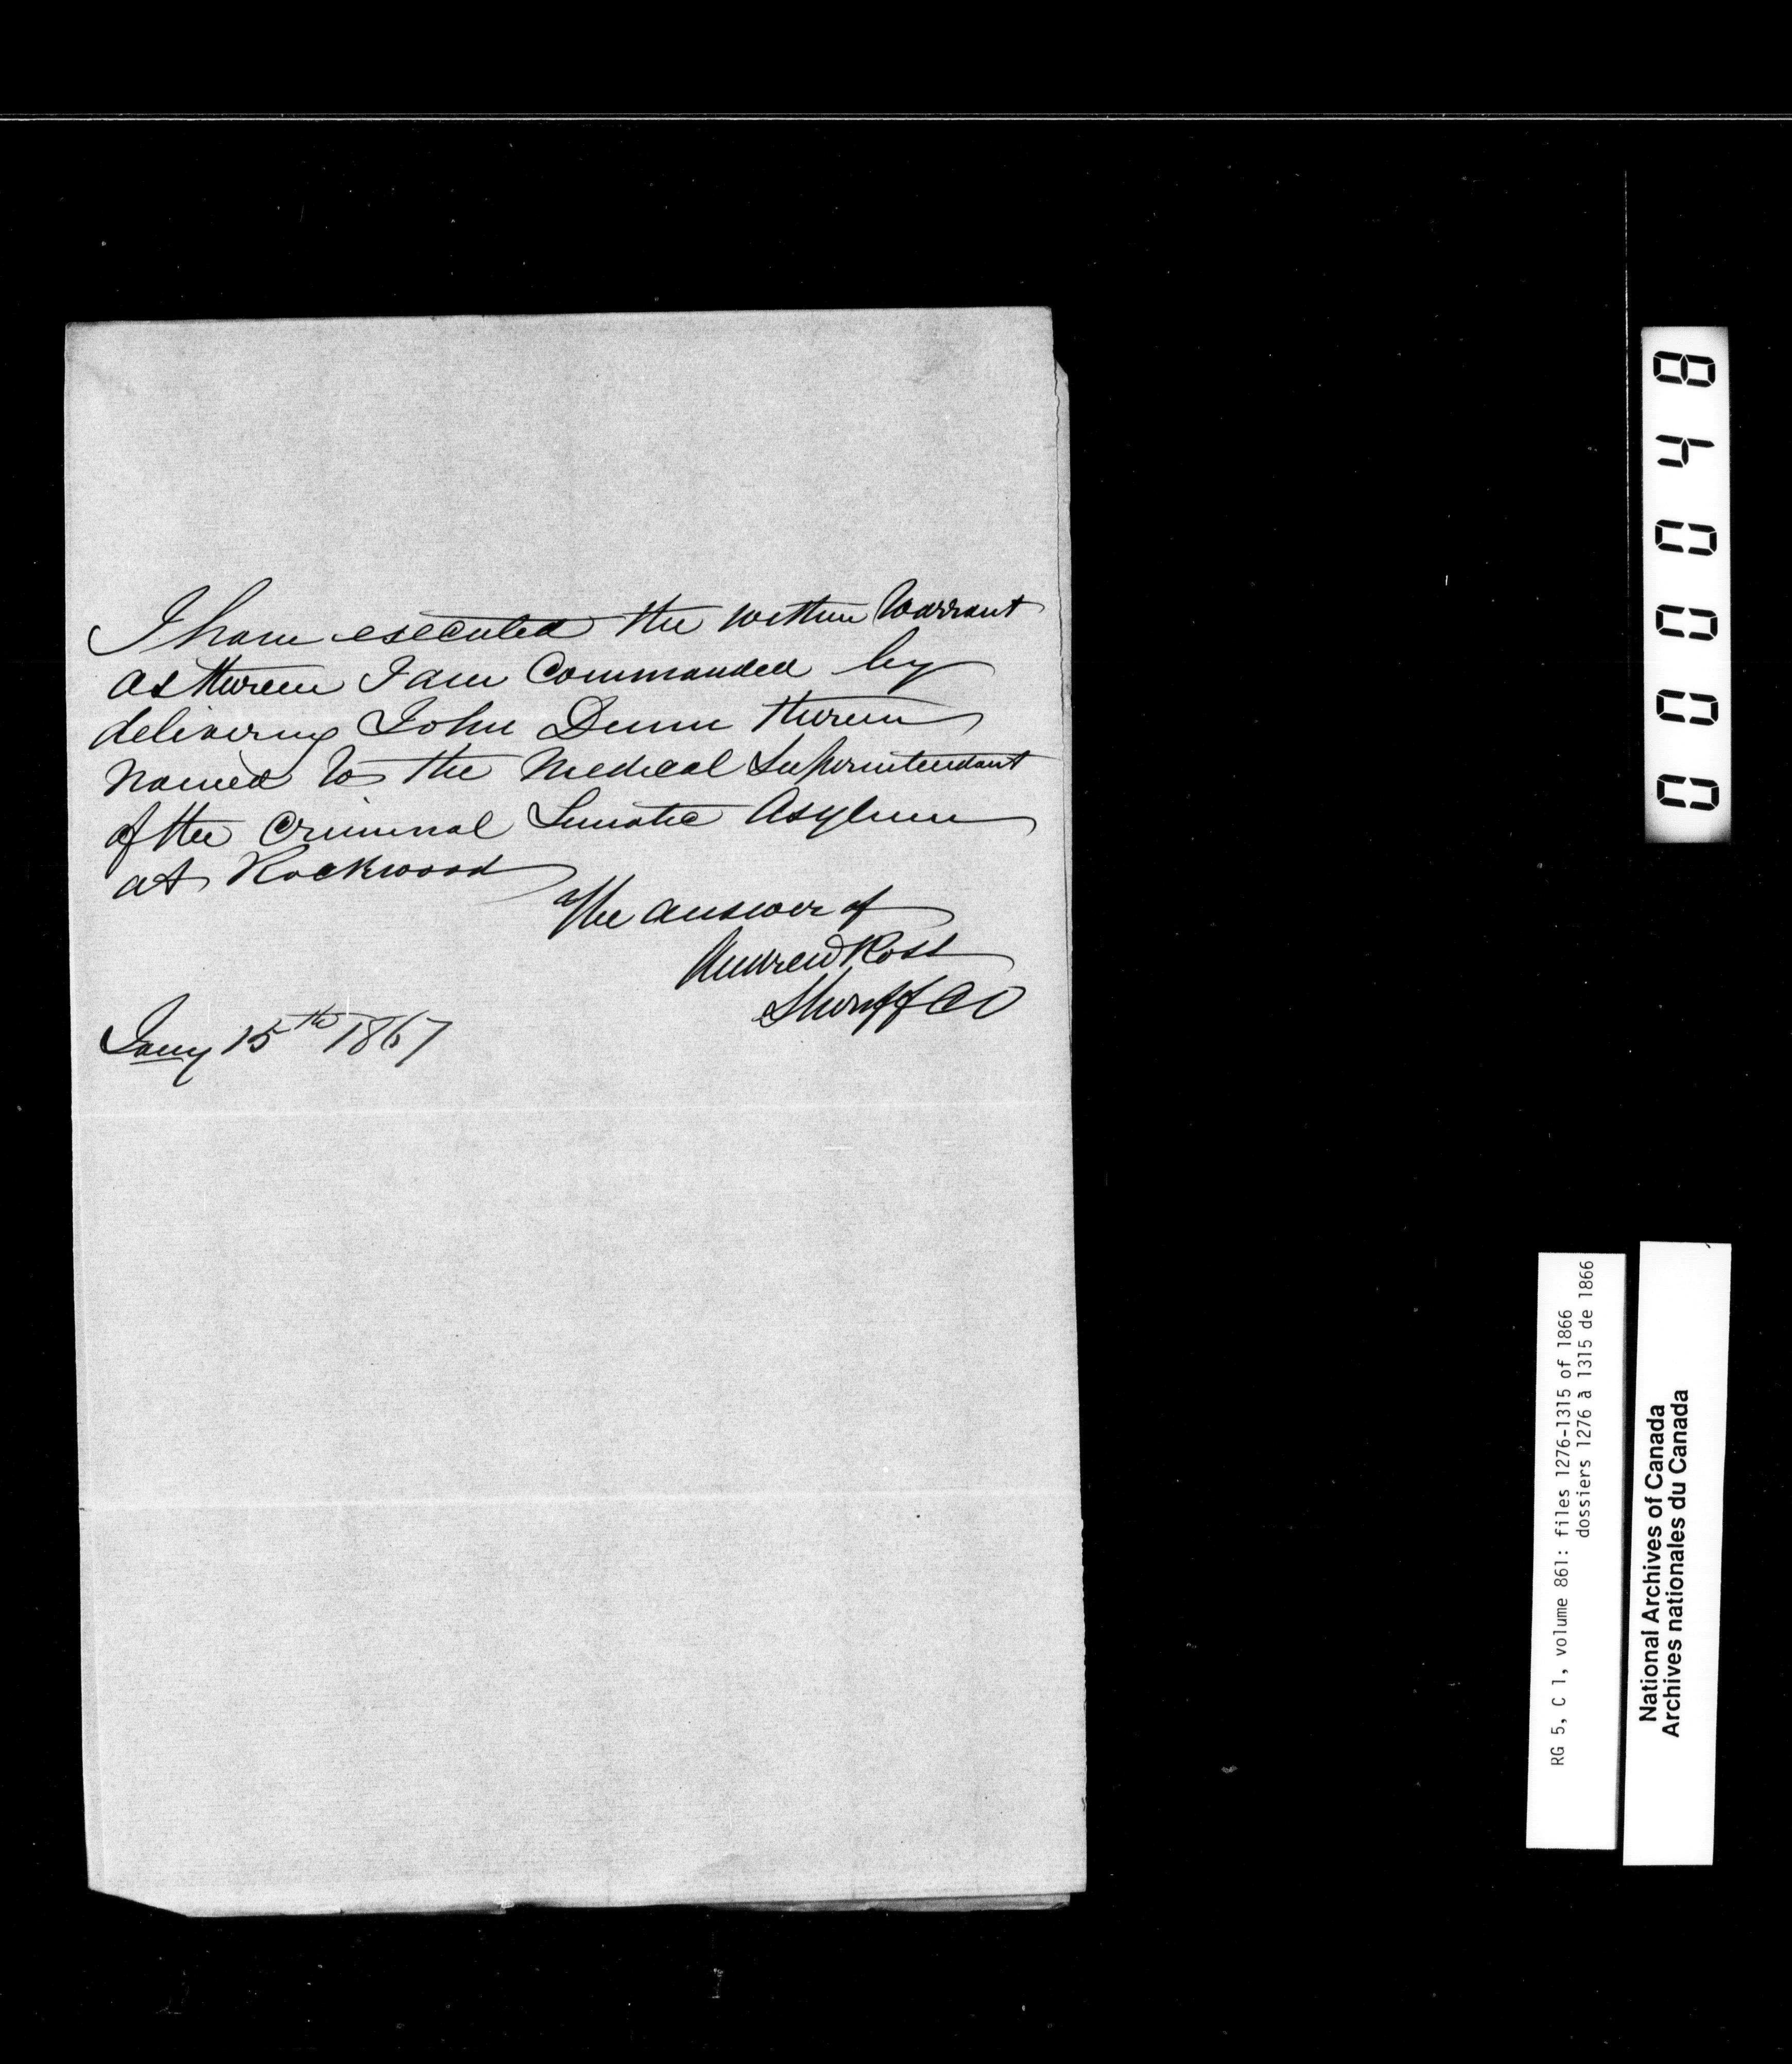 I have executed the within Warrant
as therein I am Commanded by
delivering John Dunn therein
Named to the Medical Superintendant
of the Criminal Lunatic Asylum
at Rockwood
The answer of
Andrew Ross
Sheriff CO
Jany 15th 1867
000048
RG 5, C 1, volume 861: files 1276-1315 of 1866
dossiers 1276 à 1315 de 1866
National Archives of Canada
Archives nationales du Canada